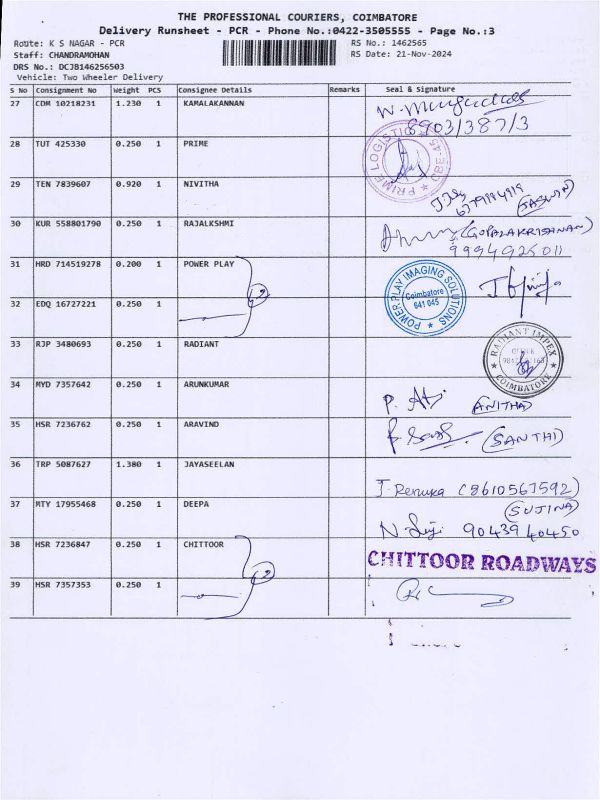 THE PROFESSIONAL COURIERS, COIMBATORE
Delivery Runsheet - PCR - Phone No.:0422-3505555 - Page No.:3
Route: K S NAGAR - PCR RS No.: 1462565
Staff: CHANDRAMOHAN RS Date: 21-Nov-2024
DRS No.: DCJB146256503
Vehicle: Two Wheeler Delivery
S No Consignment No Weight PCS Consignee Details Remarks Seal & Signature
27 CDM 10218231 1.230 1 KAMALAKANNAN
8903138713
28 TUT 425330 0.250 1 PRIME
PRIME LOGISTICS
29 TEN 7839607 0.920 1 NIVITHA
(JASWIN)
30 KUR 558801790 0.250 1 RAJALKSHMI
(GOPALAKRISHNAN)
9994926011
31 HRD 714519278 0.200 1 POWER PLAY
POWER PLAY IMAGING SOLUTIONS
Coimbatore
641 045
32 EDQ 16727221 0.250 1
33 RJP 3480693 0.250 1 RADIANT
RADIANT IMPEX
COIMBATORE
34 MYD 7357642 0.250 1 ARUNKUMAR
(ANITHA)
35 HSR 7236762 0.250 1 ARAVIND
(SANTHI)
36 TRP 5087627 1.380 1 JAYASEELAN
J. Renuka (8610567592)
37 MTY 17955468 0.250 1 DEEPA
(SUJINA)
9043940450
38 HSR 7236847 0.250 1 CHITTOOR
CHITTOOR ROADWAYS
39 HSR 7357353 0.250 1